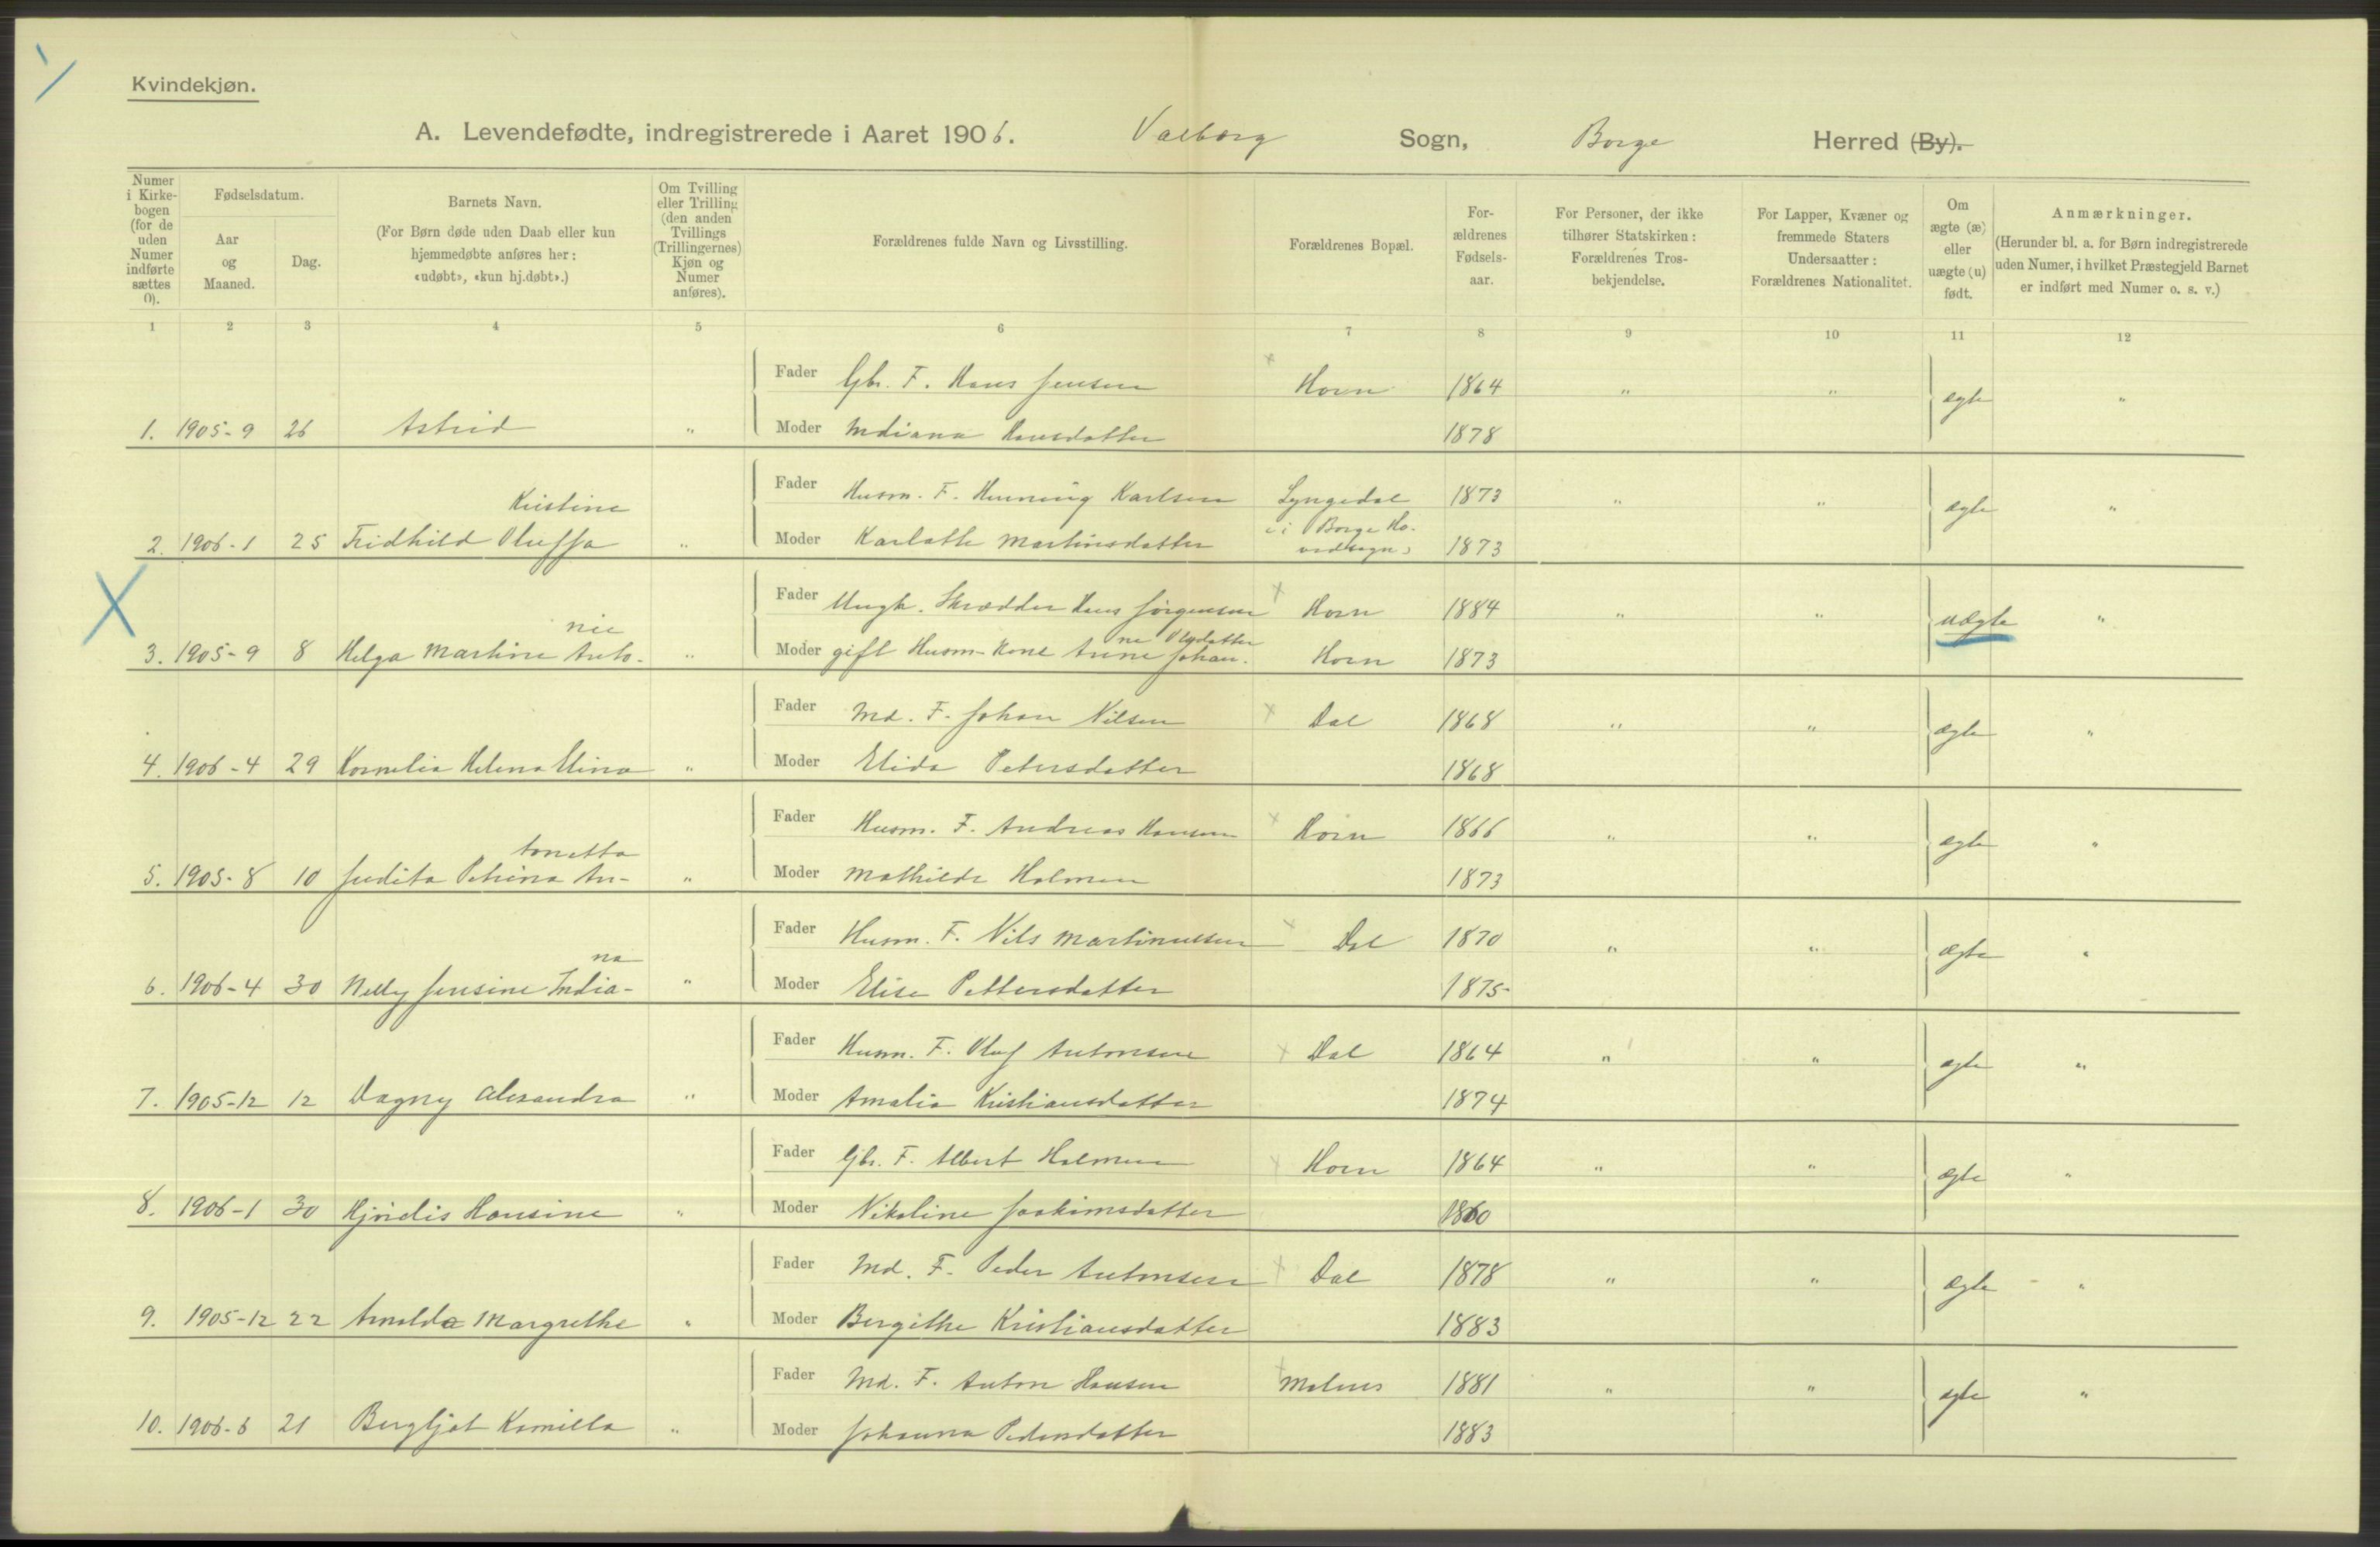 Kvindekjøn.
A. Levendefødte, indregistrerede i Aaret 1906. Valberg Sogn, Borge Herred (By).
Numer i Kirkebogen (for de uden Numer indførte sættes 0).
Fødselsdatum.
Aar og Maaned.
Dag.
Barnets Navn.
(For Børn døde uden Daab eller kun hjemmedøbte anføres her: «udøbt», «kun hj.døbt».)
Om Tvilling eller Trilling (den anden Tvillings (Trillingernes) Kjøn og Numer anføres).
Forældrenes fulde Navn og Livsstilling.
Forældrenes Bopæl.
Forældrenes Fødselsaar.
For Personer, der ikke tilhører Statskirken: Forældrenes Trosbekjendelse.
For Lapper, Kvæner og fremmede Staters Undersaatter: Forældrenes Nationalitet.
Om ægte (æ) eller uægte (u) født.
Anmærkninger.
(Herunder bl. a. for Børn indregistrerede uden Numer, i hvilket Præstegjeld Barnet er indført med Numer o. s. v.)
1 2 3 4 5 6 7 8 9 10 11 12
Fader Gbr. F. Hans Jensen × Horn 1864 " " ægte "
1. 1905-9 26 Astrid " Moder Indiana Hansdatter 1878
Fader Husm. F. Henning Karlsen Lyngedal 1873 " " ægte "
Kristine
2. 1906-1 25 Fridhild Oluffa " Moder Karlotte Martinsdatter (i Borge Hovedsogn) 1873
Fader Ungk. Skrædder Hans Jørgensen × Horn 1884 " " uægte "
nie
ne Olsdatter
3. 1905-9 8 Helga Martine Anto- " Moder gift Husm-Kone Anne Johan- Horn 1873
Fader Ind. F. Johan Nilsen × Dal 1868 " " ægte "
4. 1906-4 29 Kornelia Helena Elina " Moder Elida Petersdatter 1868
Fader Husm. F. Andreas Hansen × Horn 1866 " " ægte "
tonetta
5. 1905-8 10 Judita Petrina An- " Moder Mathilde Holmen 1873
Fader Husm. F. Nils Martinussen × Dal 1870 " " ægte "
na
6. 1906-4 30 Nelly Jensine India- " Moder Elise Pettersdatter 1875
Fader Husm. F. Oluf Antonsen × Dal 1864 " " ægte "
7. 1905-12 12 Dagny Alexandra " Moder Amalia Kristiansdatter 1874
Fader Gbr. F. Albert Holmen × Horn 1864 " " ægte "
8. 1906-1 30 Hjørdis Hansine " Moder Nikoline Joakimsdatter 1860
Fader Ind. F. Peder Antonsen × Dal 1878 " " ægte "
9. 1905-12 22 Arnolda Margrethe " Moder Bergithe Kristiansdatter 1883
Fader Ind. F. Anton Hansen × Molnes 1881 " " ægte "
10. 1906-6 21 Bergljot Kamilla " Moder Johanna Pedersdatter 1883